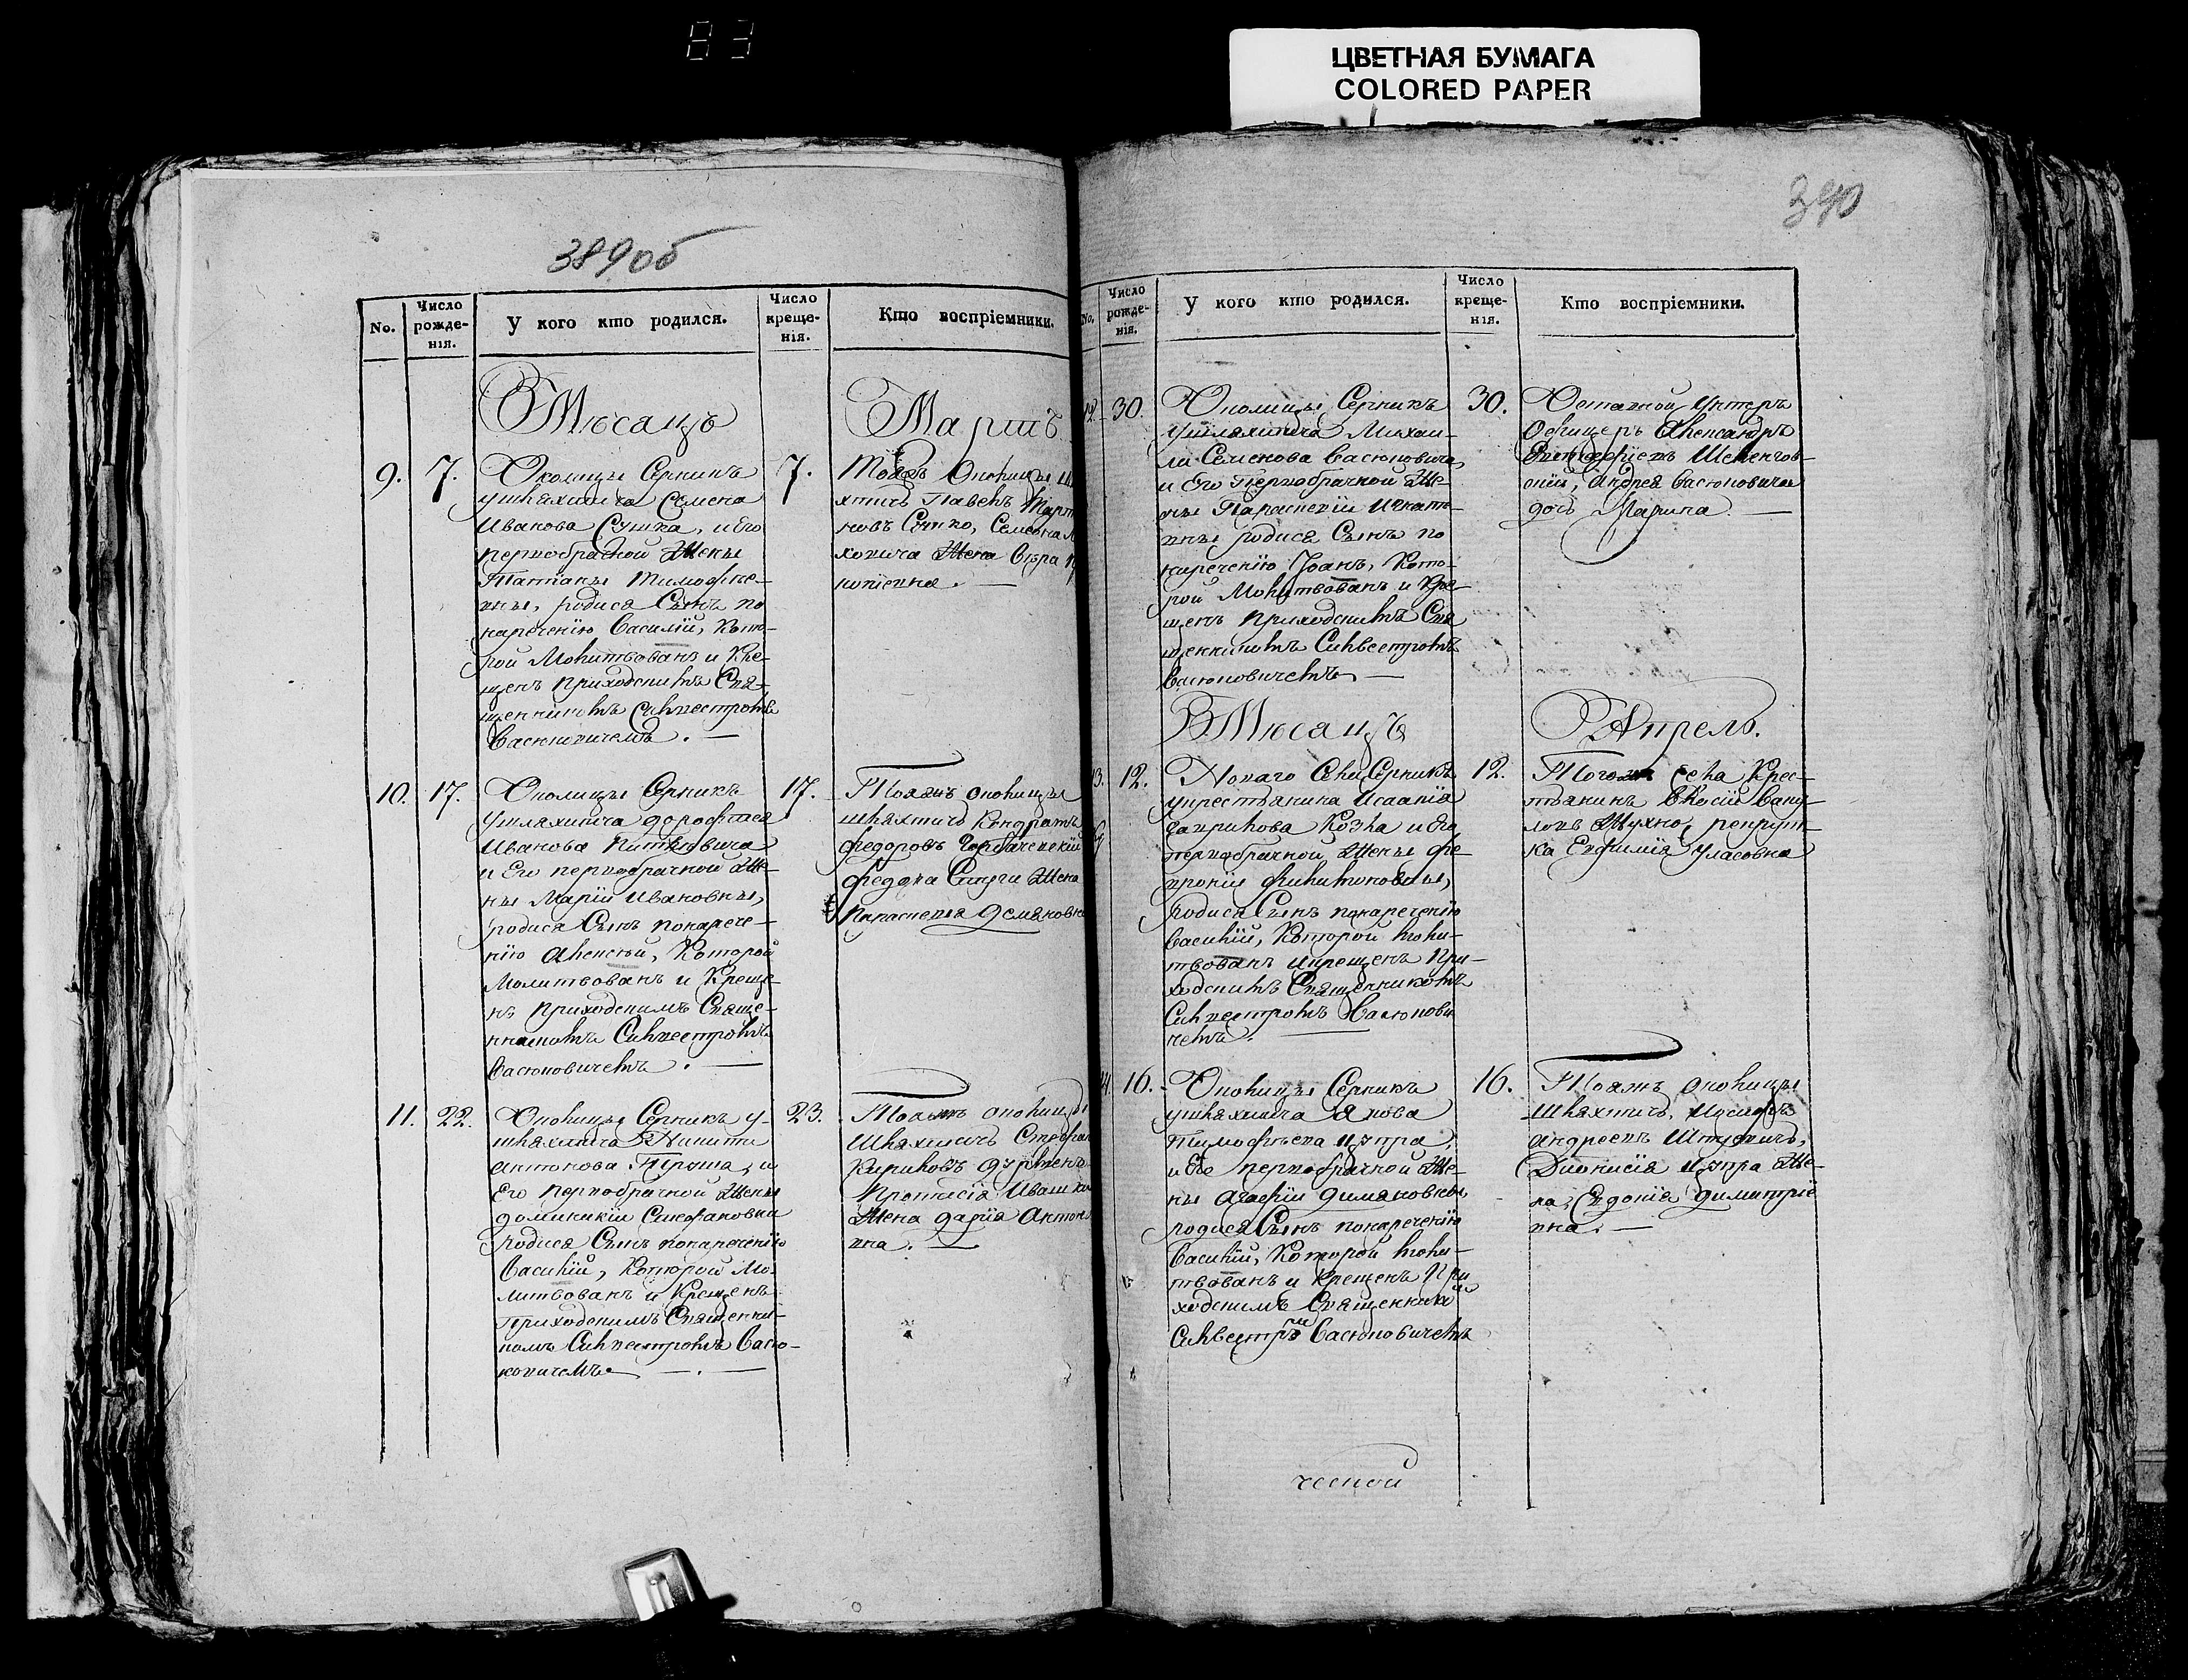 83
ЦВЕТНАЯ БУМАГА
COLORED PAPER
389об
No.
Число рожде-нія.
У кого кто родился.
Число креще-нія.
Кто воспріемники.
В Мѣсяцѣ
Мартѣ
9.
7.
Околицы Серникъ
ушляхтича Семена
Иванова Сушка, и Его
первобрачной Жены
Татіаны Тимофѣе-
вны, родися Сынъ по
наречению Василій, Кото-
рой Молитвованъ и Кре-
щенъ приходскимъ Свя-
щенникомъ Силвестромъ
Васюковичемъ.
7.
Тояжъ Околицы
хтичъ Павелъ
новъ Семена
Жена
10.
17.
Околицы Серникъ
Ушляхтича Дорофтея
Иванова
и Его первобрачной Же-
ны Маріи Ивановны,
родися Сынъ понарече-
нію Алексѣй, Которой
Молитвованъ и Креще-
нъ приходскимъ Свяще-
нникомъ Силвестромъ
Васюковичемъ.
17.
Тояжъ околицы
шляхтичъ Кондратъ
Федоровъ
Федора Жена
Параскевия Демяновна
11.
22.
Околицы Серникъ у-
шляхтича Никити
Антонова и
Его первобрачной Жены
Доминикіи Стефановны
родися Сынъ понареченію
Василій, Которой Мо-
литвованъ и Крещенъ
Приходскимъ Священни-
комъ Силвестромъ Васю-
ковичемъ
23.
Тояжъ околицы
Шляхтичъ
Кириловъ
Жена Дарія
вна.
390
No.
Число рожде-нія.
У кого кто родился.
Число креще-нія.
Кто воспріемники.
12.
30.
Околицы Серникъ
Ушляхтича Михаи-
ли Семенова Васюковича,
и Его Первобрачной Же-
ны Параскевіи Игнать-
вны родися Сынъ по
наречению Іоанъ, Кото-
рой Молитвованъ и Кре-
щенъ приходскимъ Свя
щенникомъ Силвестромъ
Васюковичемъ
30.
Отставной Унтеръ
Офицеръ Александръ
Андрея Васюковича
дочъ Марина.
В Мѣсяцѣ
Апрелѣ.
13.
12.
Новаго Села Серникъ
укрестянина Исаакія
Гаврилова Козла и Его
первобрачной Жены Фе-
вроніи
родися Сынъ понареченію
Василій, Которой Моли-
твованъ икрещенъ При-
ходскимъ Священникомъ
Силвестромъ Васюкови
чемъ.
12.
Тогожъ села Крес-
тянинъ
рекрут-
ка Евфимія Уласовна
14.
16.
Околицы Серникъ
ушляхтича Якова
Тимофѣева Цупра,
и Его первобрачной Же-
ны Агафіи Димяновны
родися Сынъ понареченію
Василій, Которой Моли-
твованъ и крещенъ При
ходскимъ Священник
Силвестр Васюковичемъ
16.
Тояжъ околицы
Шляхтичъ, Иосифъ
Андреевъ
Дионисія Цупра Же-
на, Евдокія Димитріе
вна.
ческой